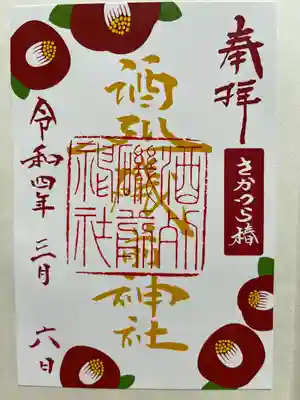 奉拝
さかつら椿
酒列磯前神社
酒列
磯前
神社
令和四年 三月 六日